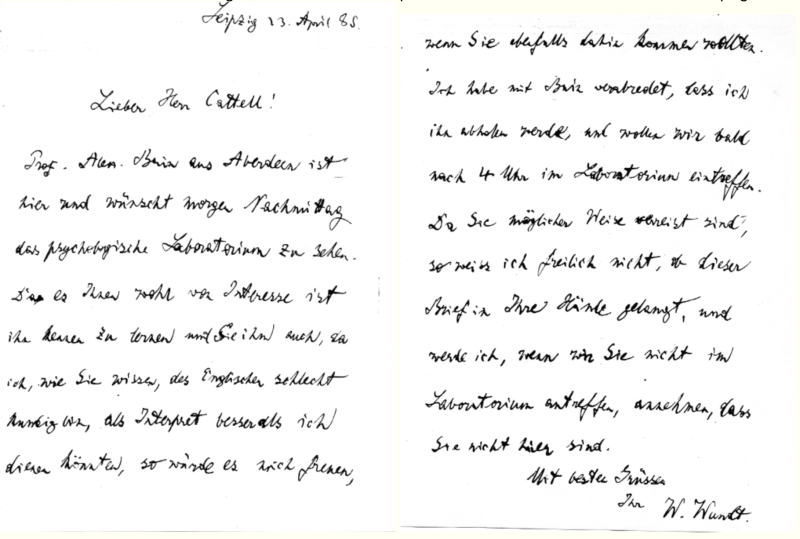 Leipzig 23. April 85.
Lieber Herr Cattell!
Prof. Alex. Bain aus Aberdeen ist
hier und wünscht morgen Nachmittag
das psychologische Laboratorium zu sehen.
Da es Ihnen wohl von Interesse ist
ihn kennen zu lernen und Sie ihm auch, da
ich, wie Sie wissen, des Englischen schlecht
kundig bin, als Interpret besser als ich
dienen könnten, so würde es mich freuen,
wenn Sie ebenfalls dahin kommen wollten.
Ich habe mit Bain verabredet, dass ich
ihn abholen werde, und wollen wir bald
nach 4 Uhr im Laboratorium eintreffen.
Da Sie möglicher Weise verreist sind,
so weiss ich freilich nicht, ob dieser
Brief in Ihre Hände gelangt, und
werde ich, wenn wir Sie nicht im
Laboratorium antreffen, annehmen, dass
Sie nicht hier sind.
Mit besten Grüssen
Ihr W. Wundt.